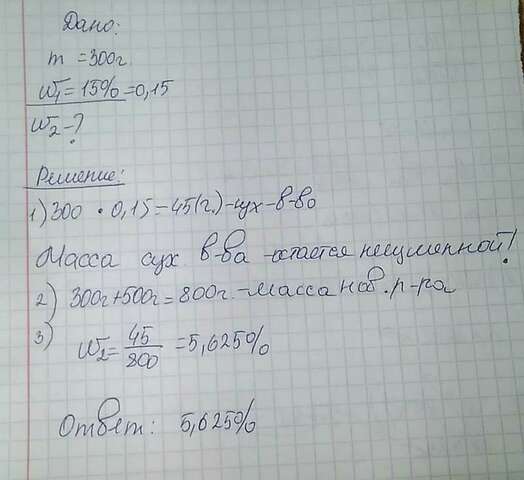 Дано:
m = 300г.
w₁ = 15% = 0,15
w₂ - ?
Решение:
1) 300 • 0,15 = 45(г.) - сух - в-во
Масса сух в-ва - остается неизменной!
2) 300г + 500г = 800г. - Масса нов. р-ра
3) w₂ = 45/800 = 5,625%
Ответ: 5,625%